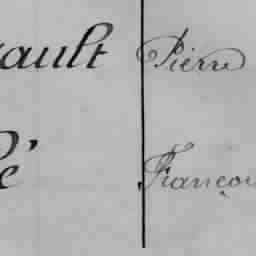 ault Pierre
é François